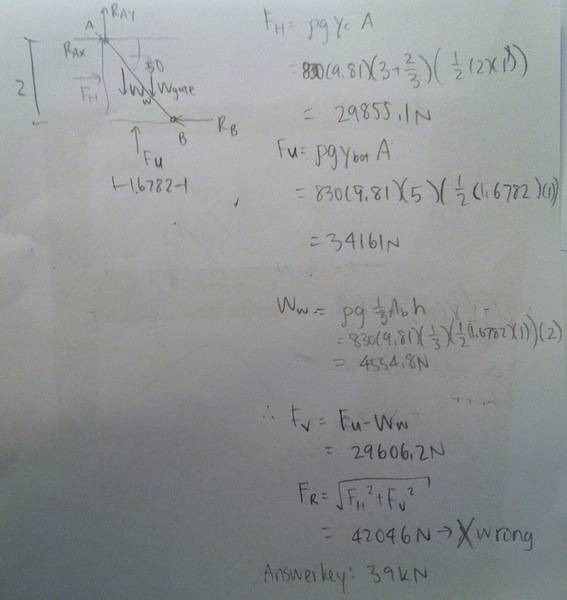 A
R_AY
R_AX
50
2
F_H
W_w
W_gate
B
R_B
F_u
1.6782
F_H = ρg y_c A
= 830(9.81)(3+2/3)(1/2(2)(1))
= 29855.1N
F_u = ρg y_bot A
= 830(9.81)(5)(1/2(1.6782)(1))
= 34161N
W_w = ρg 1/3 A_b h
= 830(9.81)(1/3)(1/2(1.6782)(1))(2)
= 4554.8N
∴ F_V = F_u - W_w
= 29606.2N
F_R = √(F_H² + F_V²)
= 42046N → X wrong
Answer key: 39kN